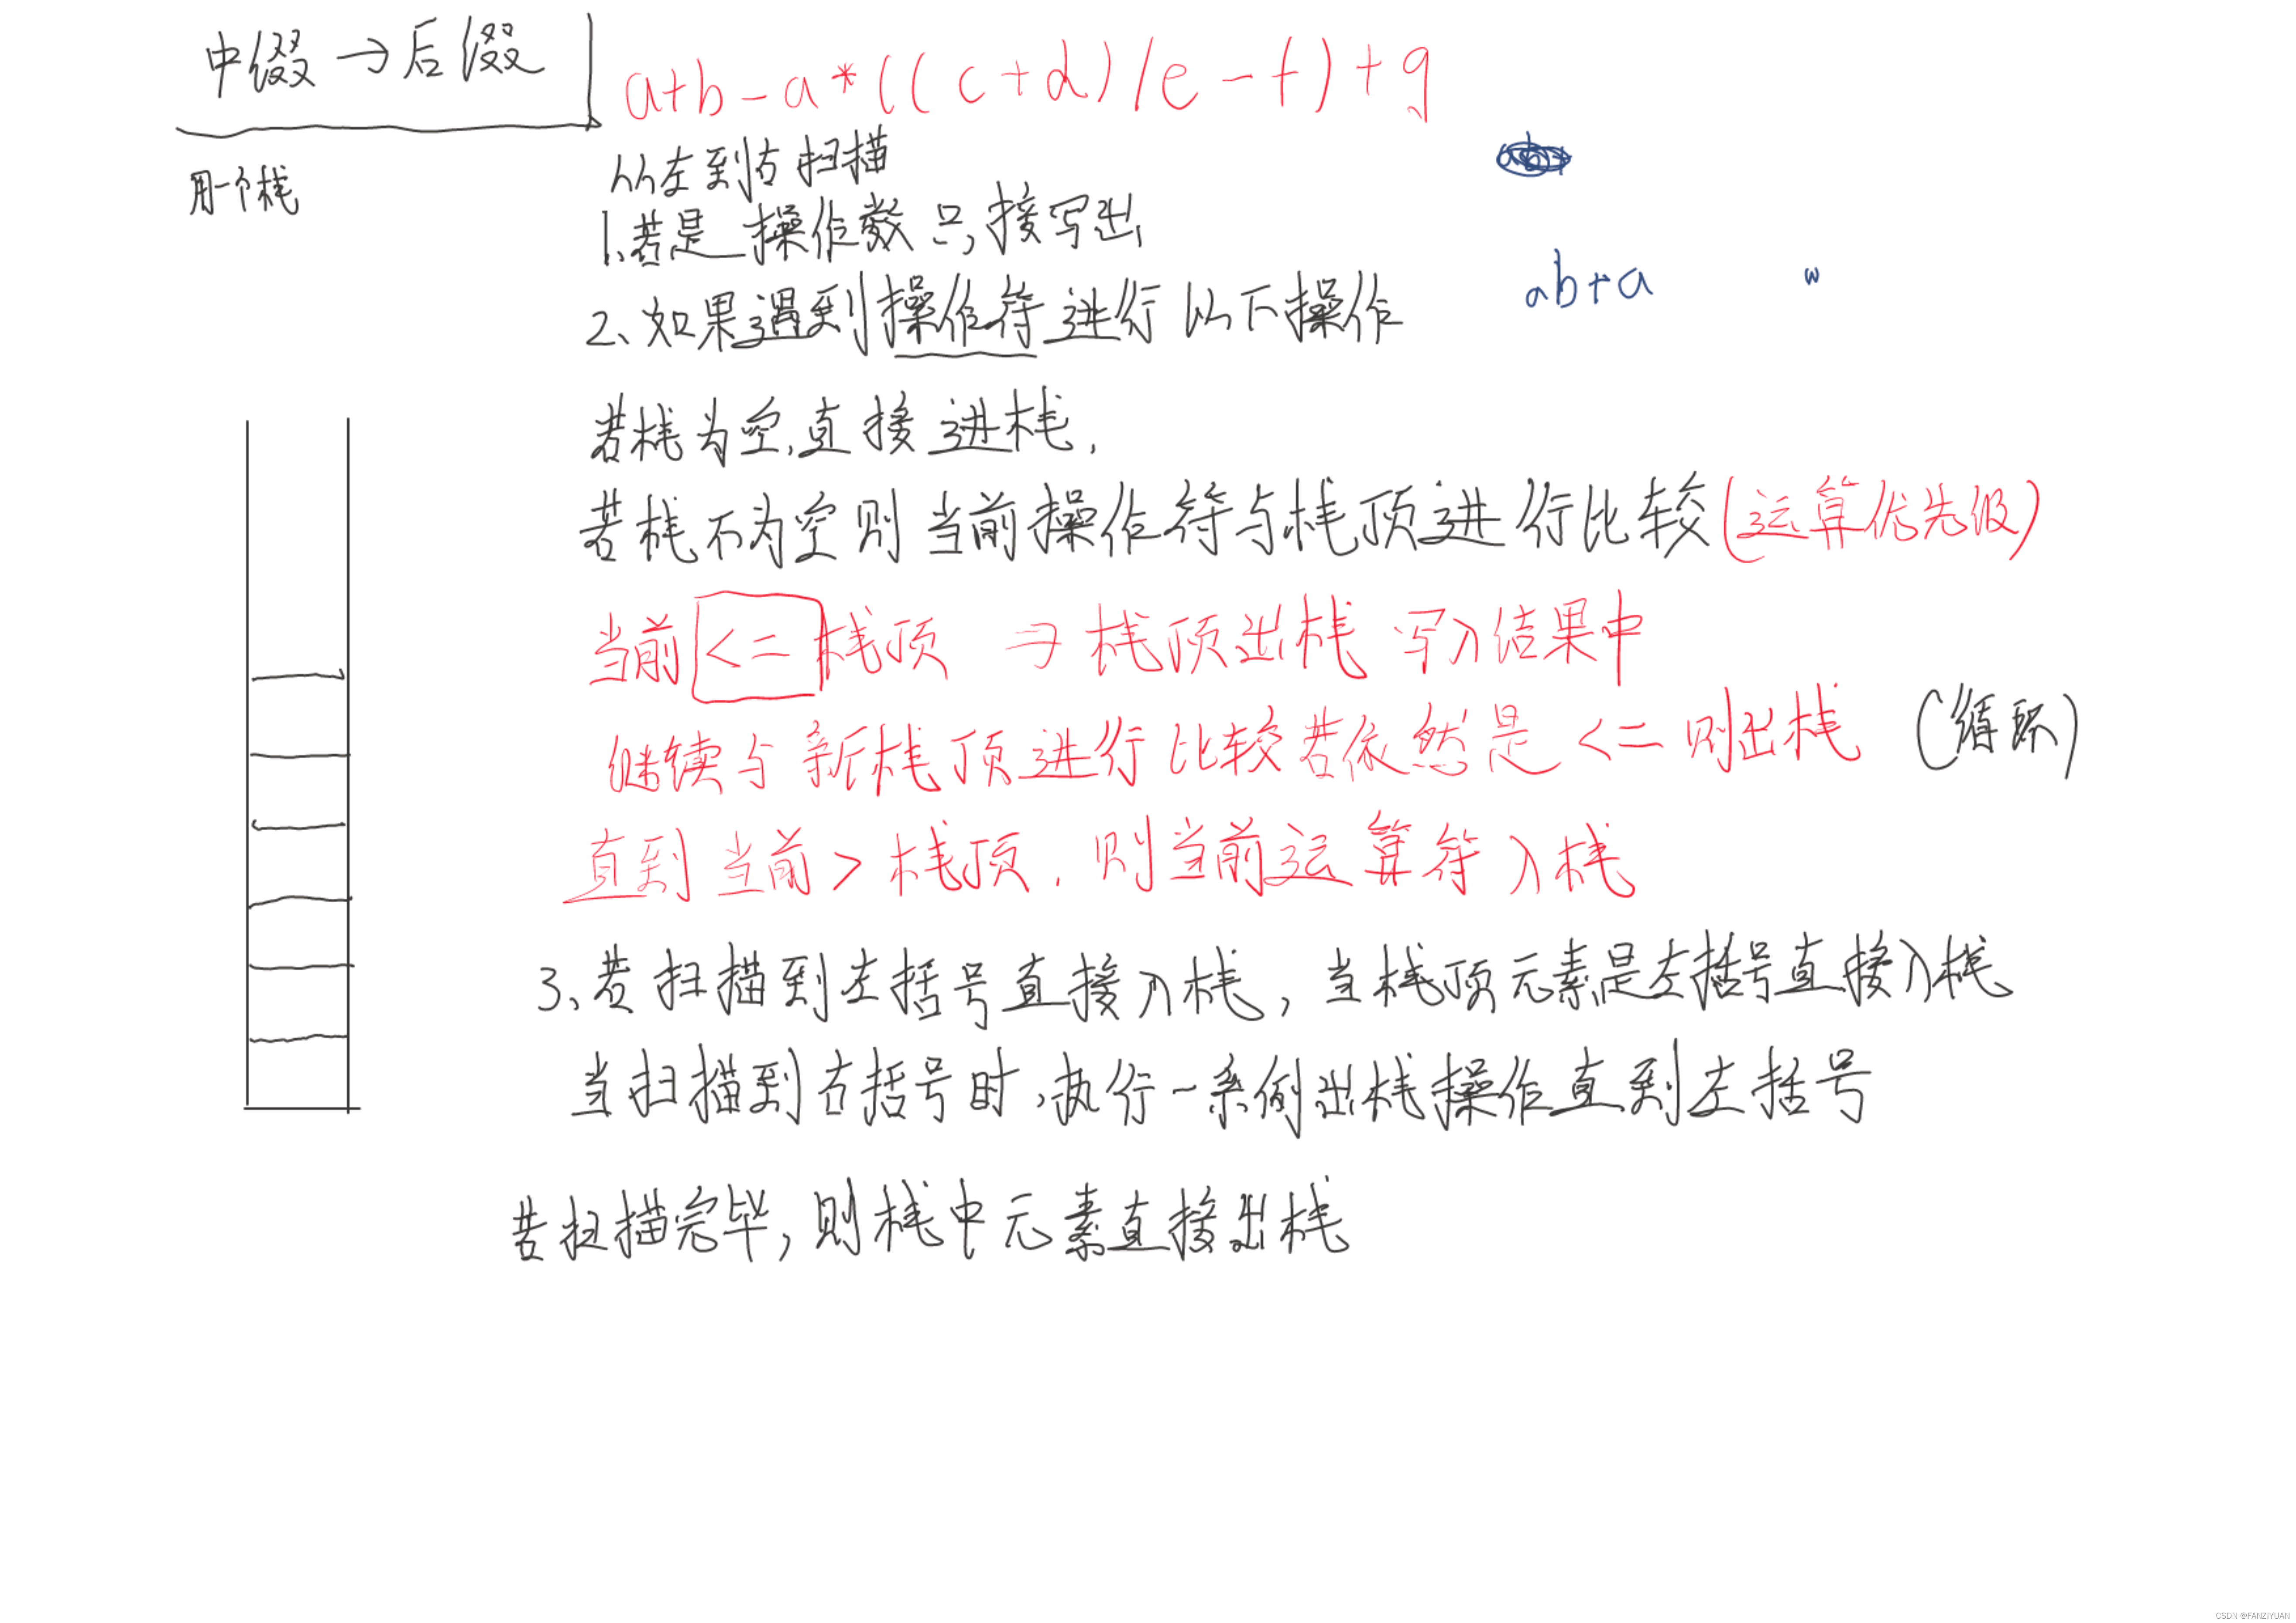 中缀→后缀
a+b-a*((c+d)/e-f)+g
用一个栈
从左到右扫描
1、若是操作数只,接写出
2、如果遇到操作符进行以下操作
ab+a
w
若栈为空,直接进栈,
若栈不为空则当前操作符与栈顶进行比较(运算优先级)
当前<=栈顶 → 栈顶出栈 写入结果中
继续与新栈顶进行比较若依然是<=则出栈 (循环)
直到当前>栈顶,则当前运算符入栈
3、若扫描到左括号直接入栈,当栈顶元素是左括号直接入栈
当扫描到右括号时,执行一系例出栈操作直到左括号
若扫描完毕,则栈中元素直接出栈
CSDN @FANZIYUAN